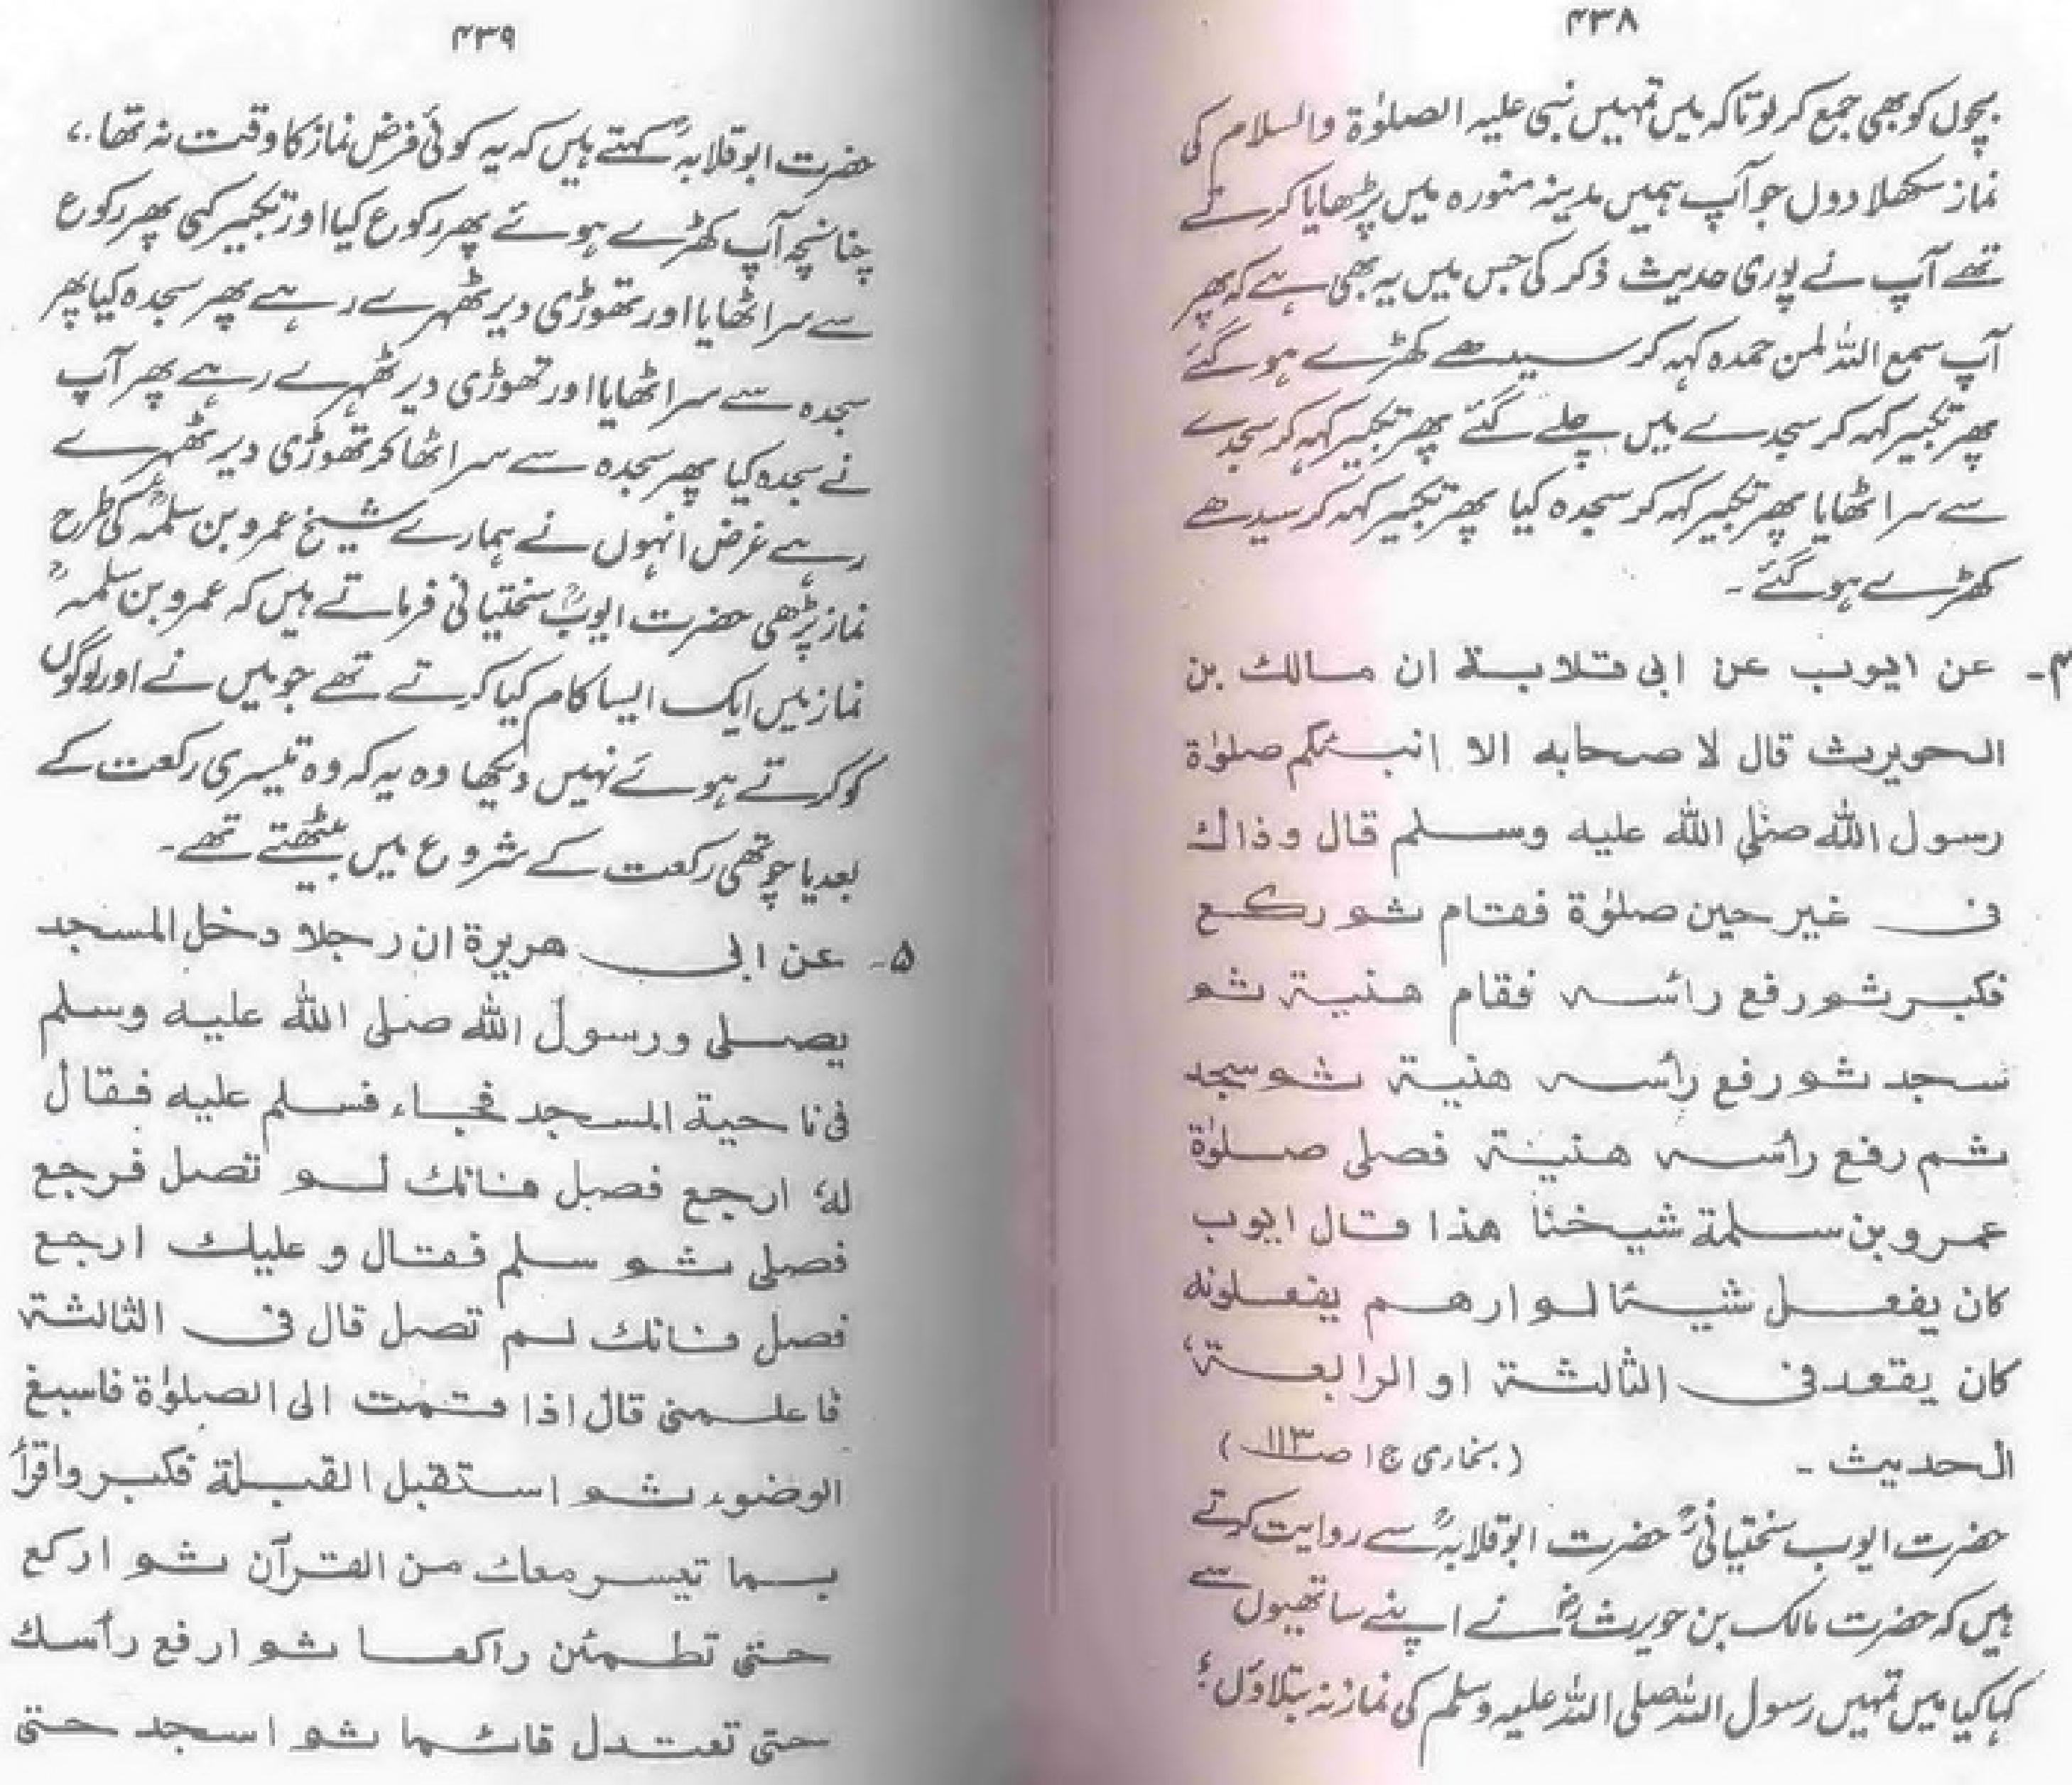 ۴۳۸
بچوں کو بھی جمع کر لو تاکہ میں تمہیں نبی علیہ الصلوٰۃ والسلام کی
نماز سکھلا دوں جو آپ ہمیں مدینہ منورہ میں پڑھایا کرتے
تھے آپ نے پوری حدیث ذکر کی جس میں یہ بھی ہے کہ پھر
آپ سمع اللہ لمن حمدہ کہہ کر سیدھے کھڑے ہو گئے
پھر تکبیر کہہ کر سجدے میں چلے گئے پھر تکبیر کہہ کر سجدے
سے سر اٹھایا پھر تکبیر کہہ کر سجدہ کیا پھر تکبیر کہہ کر سیدھے
کھڑے ہو گئے ۔
۴۔ عن ایوب عن ابی قلابۃ ان مالک بن
الحویرث قال لاصحابہ الا انبئکم صلوٰۃ
رسول اللہ صلی اللہ علیہ وسلم قال وذاک
فی غیر حین صلوٰۃ فقام ثم رکع
فکبر ثم رفع رائسہ فقام ھنیۃ ثم
سجد ثم رفع رأسہ ھنیۃ ثم سجد
ثم رفع رأسہ ھنیۃ فصلی صلوٰۃ
عمرو بن سلمۃ شیخنا ھذا قال ایوب
کان یفعل شیئا لم ارھم یفعلونہ
کان یقعد فی الثالثۃ او الرابعۃ،
الحدیث ۔ (بخاری ج۱ ص۱۱۳)
حضرت ایوب سختیانیؒ حضرت ابو قلابہؒ سے روایت کرتے
ہیں کہ حضرت مالک بن حویرثؓ نے اپنے ساتھیوں سے
کہا کیا میں تمہیں رسول اللہ صلی اللہ علیہ وسلم کی نماز نہ بتلاؤں؟
۴۳۹
حضرت ابو قلابہؒ کہتے ہیں کہ یہ کوئی فرض نماز کا وقت نہ تھا۔،
چنانچہ آپ کھڑے ہوئے پھر رکوع کیا اور تکبیر کہی پھر رکوع
سے سر اٹھایا اور تھوڑی دیر ٹھہرے رہے پھر سجدہ کیا پھر
سجدہ سے سر اٹھایا اور تھوڑی دیر ٹھہرے رہے پھر آپ
نے سجدہ کیا پھر سجدہ سے سر اٹھا کر تھوڑی دیر ٹھہرے
رہے غرض انہوں نے ہمارے شیخ عمرو بن سلمہؒ کی طرح
نماز پڑھی حضرت ایوبؒ سختیانی فرماتے ہیں کہ عمرو بن سلمہؒ
نماز میں ایک ایسا کام کیا کرتے تھے جو میں نے اور لوگوں
کو کرتے ہوئے نہیں دیکھا وہ یہ کہ وہ تیسری رکعت کے
بعد یا چوتھی رکعت کے شروع میں بیٹھتے تھے۔
۵۔ عن ابی ھریرۃ ان رجلا دخل المسجد
یصلی ورسول اللہ صلی اللہ علیہ وسلم
فی ناحیۃ المسجد فجاء فسلم علیہ فقال
لہ، ارجع فصل فانک لم تصل فرجع
فصلی ثم سلم فقال وعلیک ارجع
فصل فانک لم تصل قال فی الثالثۃ
فاعلمنی قال اذا قمت الی الصلوٰۃ فاسبغ
الوضوء ثم استقبل القبلۃ فکبر واقرأ
بما تیسر معک من القرآن ثم ارکع
حتی تطمئن راکعا ثم ارفع رأسک
حتی تعتدل قائما ثم اسجد حتی